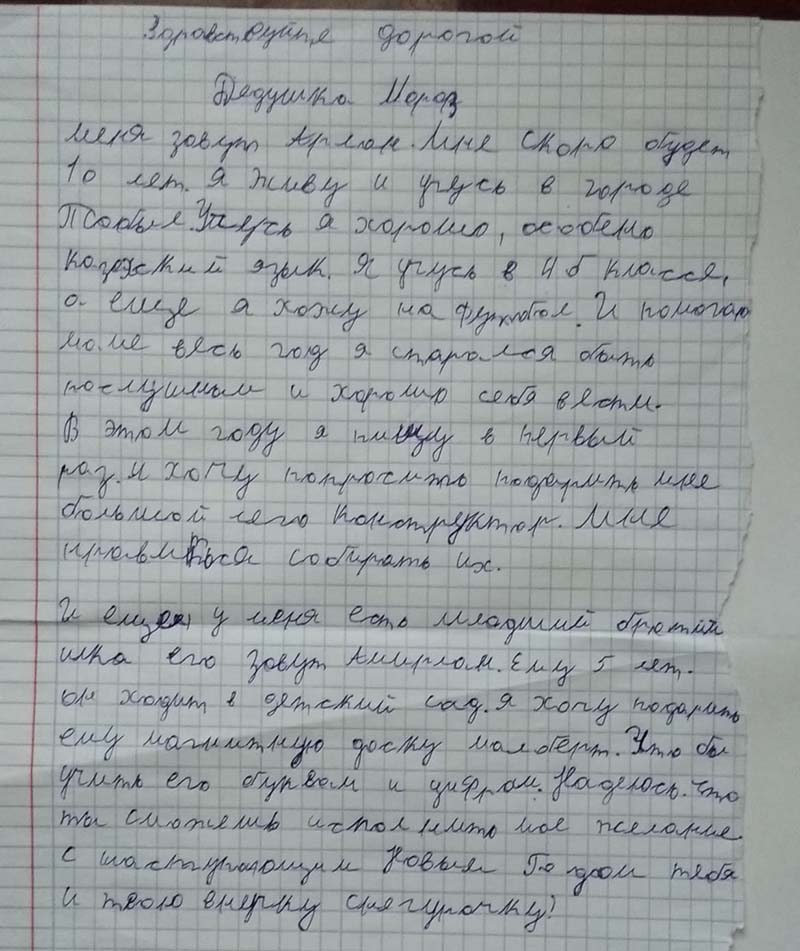 Здравствуйте дорогой
Дедушка Мороз
меня зовут Арлан. Мне скоро будет
10 лет. Я живу и учусь в городе
Учусь я хорошо, особено
казахский язык. Я учусь в 4 б классе,
а еще я хожу на футбол. И помогаю
маме весь год я старался быть
послушным и хорошо себя вести.
В этом году я пишу в первый
раз. Я хочу попросить подарить мне
большой лего конструктор. Мне
нравиться собирать их.
И еще у меня есть младший братий
шка его зовут Амирлан. Ему 5 лет.
он ходит в детский сад. я хочу подарить
ему магнитную доску малберт. Что бы
учить его буквам и цифрам. Надеюсь. что
ты сможешь исполнить мое желание.
с наступающим Новым Го дом тебя
и твою внучку снегурочку!